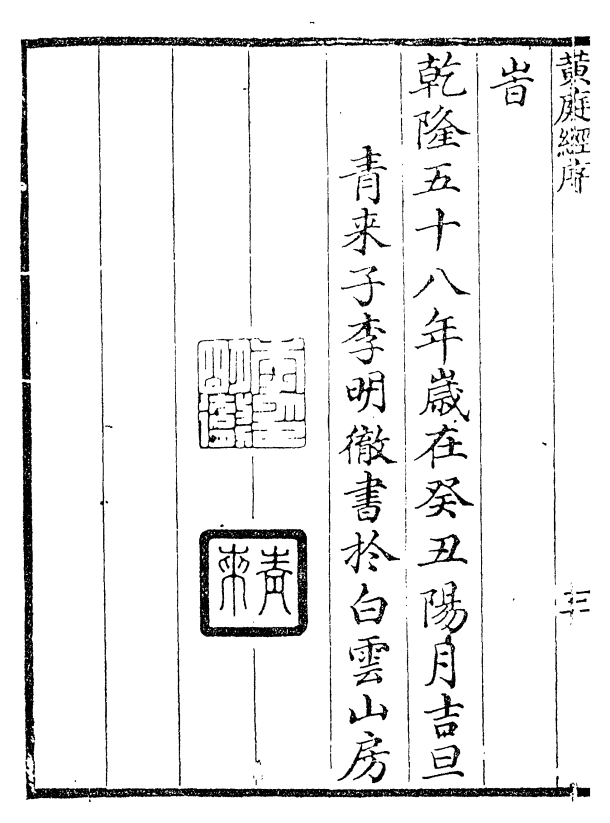 黄庭經序
三
旹
乾隆五十八年嵗在癸丑陽月吉旦
青来子李明徹書扵白雲山房
青來